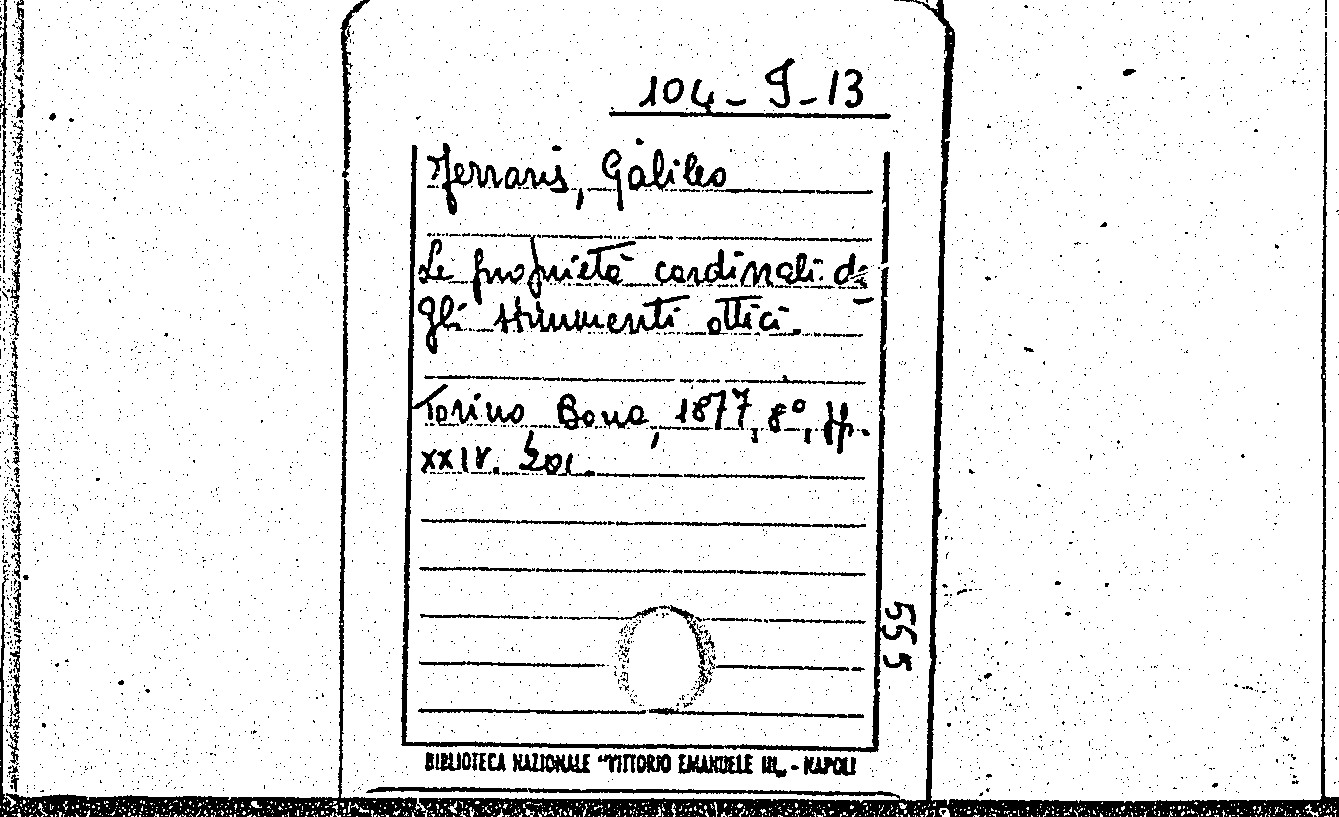 104-J-13
Ferraris, Galileo
Le proprietà cardinali de
gli strumenti ottici.
Torino Bona, 1877, 8°, pp.
XXIV. 201.
555
BIBLIOTECA NAZIONALE "VITTORIO EMANUELE III„ - NAPOLI